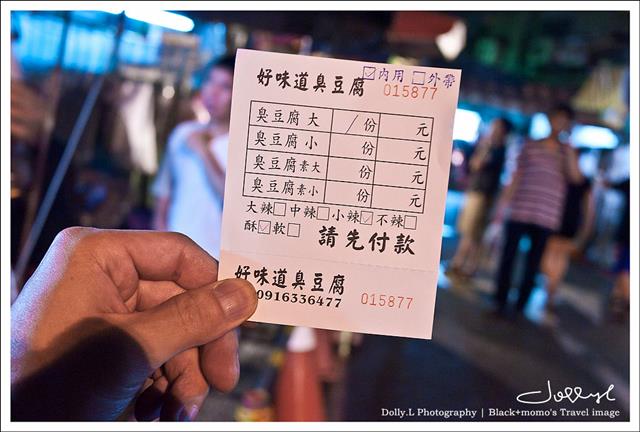 ☑內用 ☐外帶
好味道臭豆腐 015877
臭豆腐大 / 份 元
臭豆腐小 份 元
臭豆腐素大 份 元
臭豆腐素小 份 元
大辣☐中辣☐小辣☑不辣☐
酥☑軟☐ 請先付款
好味道臭豆腐
0916336477 015877
Dollyl
Dolly.L Photography | Black+momo's Travel image